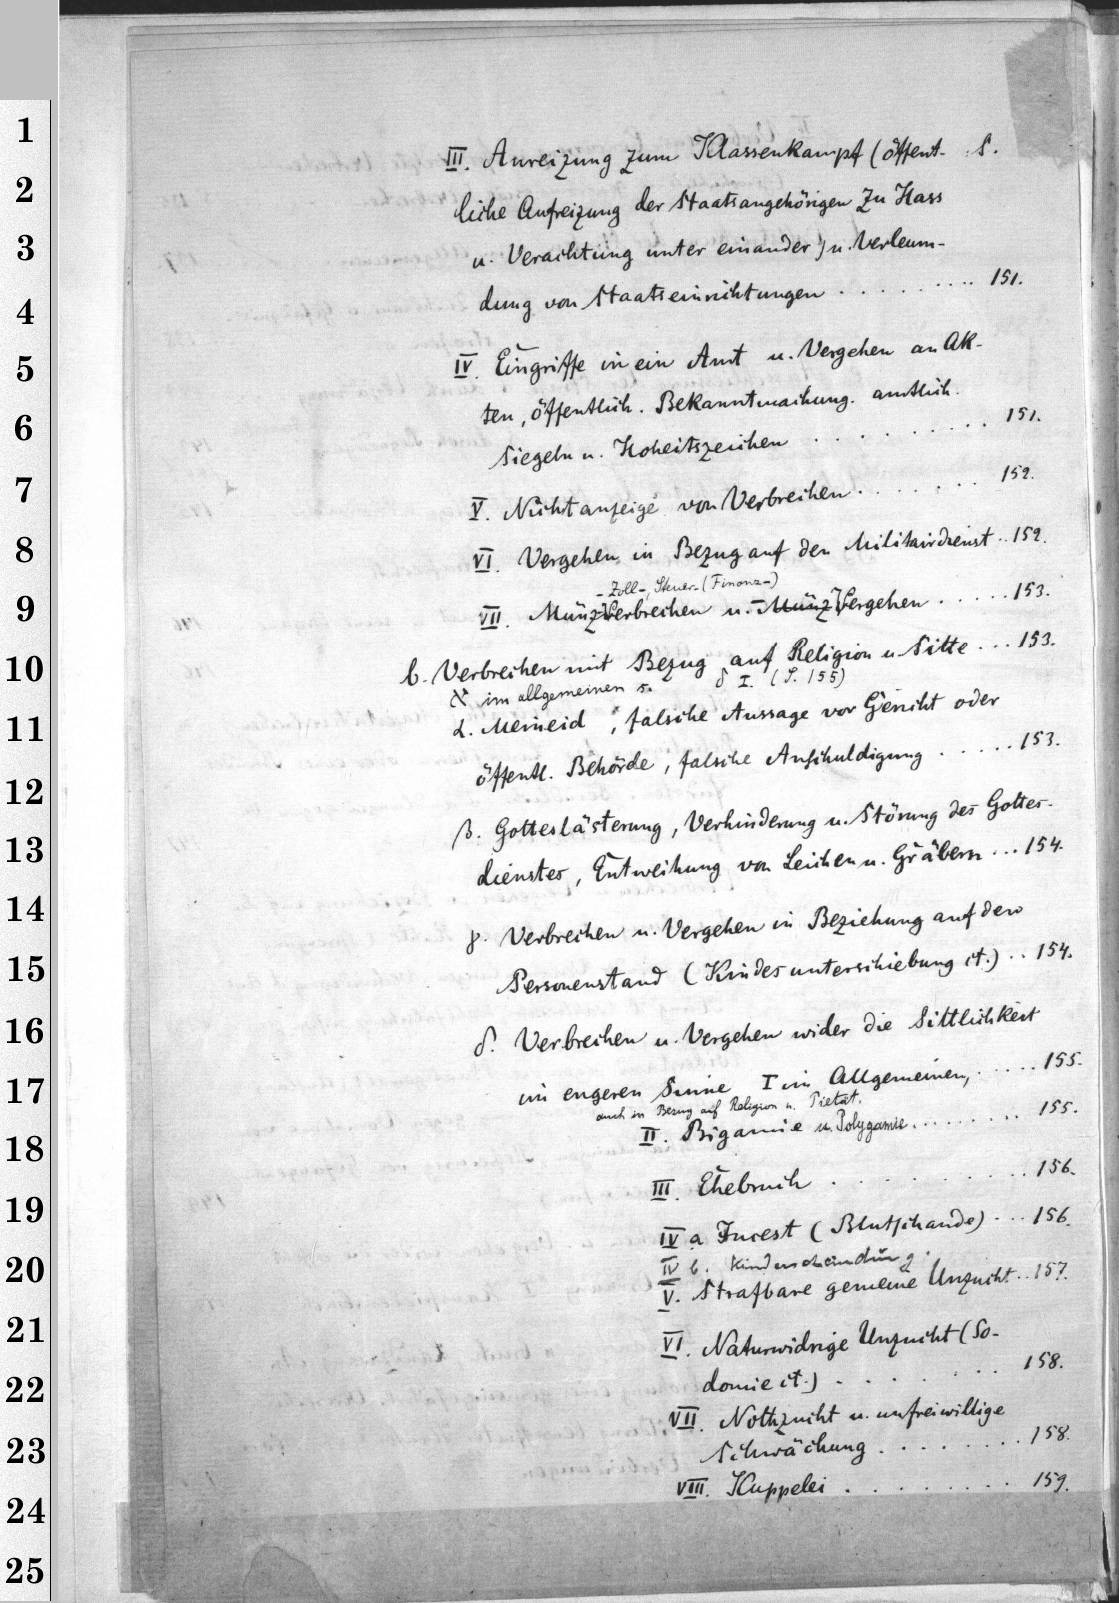 1
2
3
4
5
6
7
8
9
10
11
12
13
14
15
16
17
18
19
20
21
22
23
24
25
III. Anreizung zum Klassenkampf (öffent- S.
liche Aufreizung der Staatsangehörigen zu Hass
u. Verachtung unter einander) u. Verleum-
dung von Staatseinrichtungen . . . . . . . . . 151.
IV. Eingriffe in ein Amt u. Vergehen an Ak-
ten, öffentlich. Bekanntmachung. amtlich.
Siegeln u. Hoheitszeichen . . . . . . . . . 151.
V. Nichtanzeige von Verbrechen . . . . . . . 152.
VI. Vergehen in Bezug auf den Militairdienst .. 152.
- Zoll-, Steuer- (Finanz-)
VII. Münzverbrechen u. - Münzvergehen . . . . . 153.
b. Verbrechen mit Bezug auf Religion u. Sitte ... 153.
im allgemeinen s. δ I. (S. 155)
α. Meineid, falsche Aussage vor Gericht oder
öffentl. Behörde, falsche Anschuldigung . . . . . 153.
β. Gotteslästerung, Verhinderung u. Störung des Gottes-
dienstes, Entweihung von Leichen u. Gräbern ... 154.
γ. Verbrechen u. Vergehen in Beziehung auf den
Personenstand (Kindesunterschiebung et.) .. 154.
δ. Verbrechen u. Vergehen wider die Sittlichkeit
im engeren Sinne I im Allgemeinen, . . . . . . 155.
auch in Bezug auf Religion u. Pietät.
II. Bigamie u. Polygamie . . . . . . . . 155.
III. Ehebruch . . . . . . . . . . 156.
IV a Incest (Blutschande) . ... 156.
IV b. Kinderschändung.
V. Strafbare gemeine Unzucht .. 157.
VI. Naturwidrige Unzucht (So-
domie et.) . . . . . . . 158.
VII. Nothzucht u. unfreiwillige
Schwächung . . . . . . . . 158.
VIII. Kuppelei . . . . . . . . . 159.